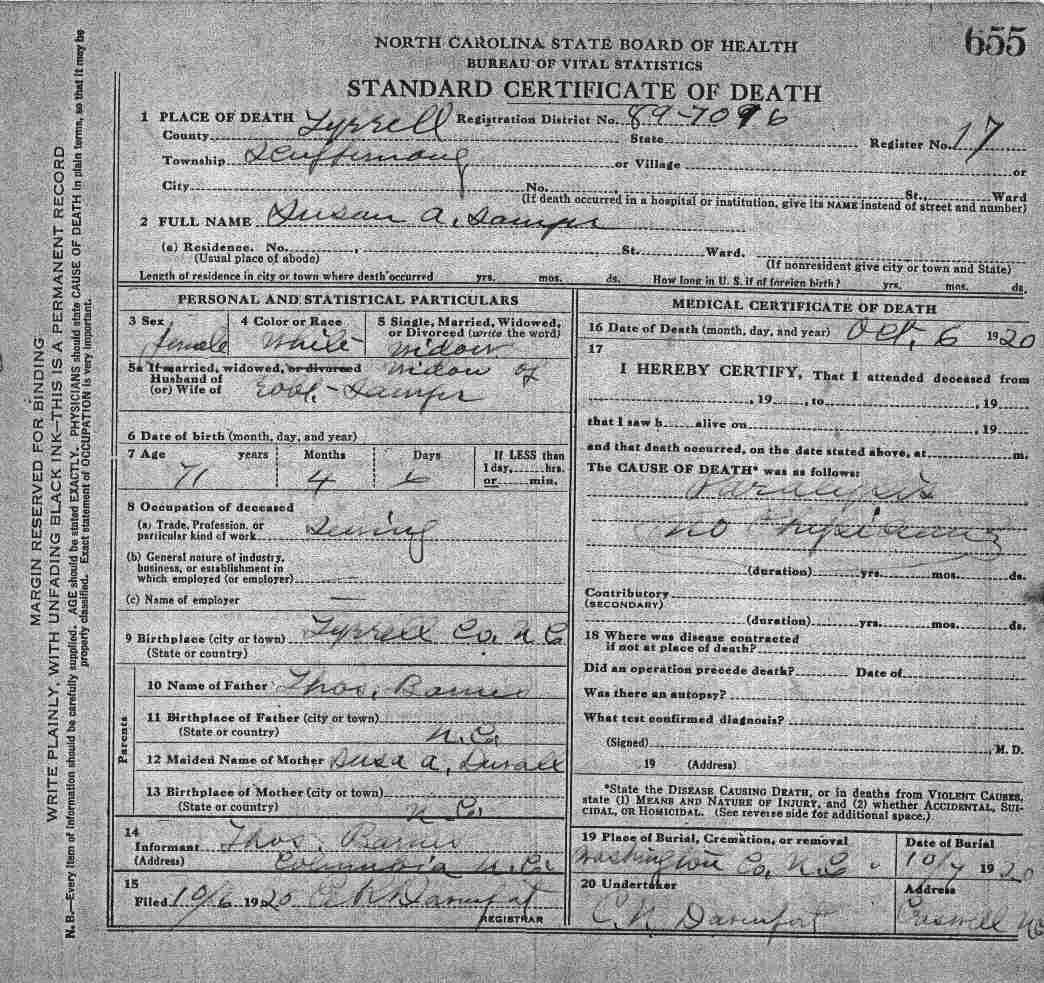 655
NORTH CAROLINA STATE BOARD OF HEALTH
BUREAU OF VITAL STATISTICS
STANDARD CERTIFICATE OF DEATH
1 PLACE OF DEATH Tyrrell Registration District No. 89-7096
County State Register No. 17
Township Scuppernong or Village or
City No. St., Ward
(If death occurred in a hospital or institution, give its NAME instead of street and number)
2 FULL NAME Susan A.
(a) Residence. No. St. Ward.
(Usual place of abode) (If nonresident give city or town and State)
Length of residence in city or town where death occurred yrs. mos. ds. How long in U. S. if of foreign birth? yrs. mos. ds.
PERSONAL AND STATISTICAL PARTICULARS
3 Sex 4 Color or Race 5 Single, Married, Widowed,
or Divorced (write the word)
female White Widow
5a If married, widowed, or divorced Widow of
Husband of
(or) Wife of
6 Date of birth (month, day, and year)
7 Age years Months Days If LESS than
1 day, hrs.
or min.
71 4 6
8 Occupation of deceased
(a) Trade, Profession, or
particular kind of work Sewing
(b) General nature of industry,
business, or establishment in
which employed (or employer)
(c) Name of employer —
9 Birthplace (city or town) Tyrrell Co. N C
(State or country)
Parents
10 Name of Father Thos. Barnes
11 Birthplace of Father (city or town)
(State or country) N.C.
12 Maiden Name of Mother A.
13 Birthplace of Mother (city or town)
(State or country) N. C.
14
Informant Thos. Barnes
(Address) Columbia N.C.
15
Filed 10/6 1920 Davenport
REGISTRAR
MEDICAL CERTIFICATE OF DEATH
16 Date of Death (month, day, and year) Oct. 6 1920
17
I HEREBY CERTIFY, That I attended deceased from
, 19 , to , 19
that I saw h alive on , 19
and that death occurred, on the date stated above, at m.
The CAUSE OF DEATH* was as follows:
Paralysis
no
(duration) yrs. mos. ds.
Contributory
(SECONDARY)
(duration) yrs. mos. ds.
18 Where was disease contracted
if not at place of death?
Did an operation precede death? Date of
Was there an autopsy?
What test confirmed diagnosis?
(Signed) , M. D.
19 (Address)
*State the DISEASE CAUSING DEATH, or in deaths from VIOLENT CAUSES,
state (1) MEANS AND NATURE OF INJURY, and (2) whether ACCIDENTAL, SUI-
CIDAL, OR HOMICIDAL. (See reverse side for additional space.)
19 Place of Burial, Cremation, or removal Date of Burial
Washington Co. N.C. 10/7 1920
20 Undertaker Address
C. N. Davenport Creswell NC
MARGIN RESERVED FOR BINDING
WRITE PLAINLY, WITH UNFADING BLACK INK—THIS IS A PERMANENT RECORD
N. B.—Every item of information should be carefully supplied. AGE should be stated EXACTLY. PHYSICIANS should state CAUSE OF DEATH in plain terms, so that it may be
properly classified. Exact statement of OCCUPATION is very important.